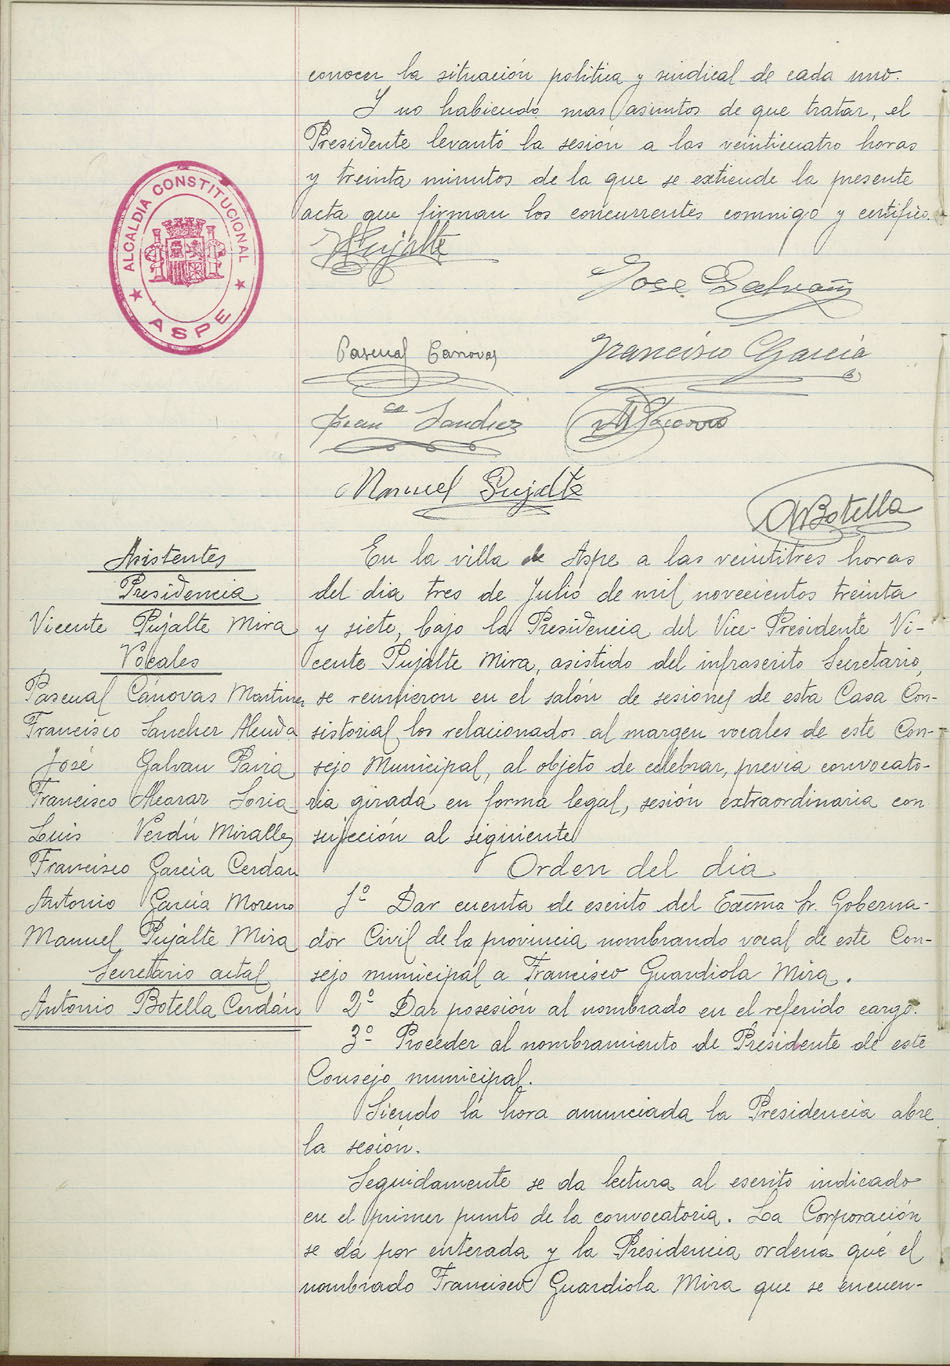 conocer la situación politica y sindical de cada uno.
Y no habiendo mas asuntos de que tratar, el
Presidente levantó la sesión a las veinticuatro horas
y treinta minutos de la que se extiende la presente
acta que firman los concurrentes conmigo y certifico.
ALCALDIA CONSTITUCIONAL
ASPE
VPujalte
Jose Galvañ
Pascual Cánovas
Francisco García
Franco Sanchez
Manuel Pujalte
ABotella
Asistentes
Presidencia
Vicente Pujalte Mira
Vocales
Pascual Cánovas Martinez
Francisco Sanchez Almda
José Galvan Pavia
Francisco Alcaraz Soria
Luis Verdú Miralles
Francisco García Cerdan
Antonio García Moreno
Manuel Pujalte Mira
Secretario actal
Antonio Botella Cerdán
En la villa de Aspe a las veintitres horas
del dia tres de Julio de mil novecientos treinta
y siete, bajo la Presidencia del Vice-Presidente Vi-
cente Pujalte Mira, asistido del infrascrito Secretario,
se reunieron en el salón de sesiones de esta Casa Con-
sistorial los relacionados al margen vocales de este Con-
sejo Municipal, al objeto de celebrar, previa convocato-
ria girada en forma legal, sesión extraordinaria con
sujección al siguiente
Orden del dia
1º Dar cuenta de escrito del Excmo Sr. Goberna-
dor Civil de la provincia nombrando vocal de este Con-
sejo municipal a Francisco Guardiola Mira.
2º Dar posesión al nombrado en el referido cargo.
3º Proceder al nombramiento de Presidente de este
Consejo municipal.
Siendo la hora anunciada la Presidencia abre
la sesión.
Seguidamente se da lectura al escrito indicado
en el primer punto de la convocatoria. La Corporación
se dá por enterada y la Presidencia ordena que el
nombrado Francisco Guardiola Mira que se encuen-